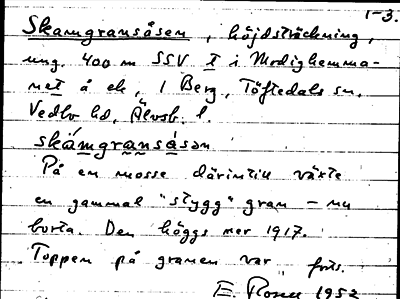 1-3.
Skamgransåsen, höjdsträckning,
ung. 400 m SSV t i Modighemma-
net å ek, 1 Berg, Töftedals sn,
Vedbo hd, Älvsb. l.
skámgransåsən
På en mosse därintill växte
en gammal "stygg" gran – nu
borta. Den höggs ner 1917.
Toppen på granen var
E. Rosell 1952